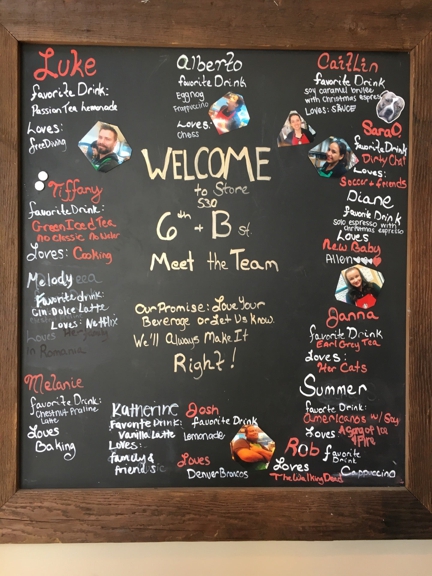 Luke
favorite Drink:
Passion Tea Lemonade
Loves:
freeDiving
Alberto
favorite Drink
Eggnog
Frappuccino
Loves:
Chess
Caitlin
favorite Drink
soy caramel brulee
with Christmas espresso
Loves: SAUCE
SaraO.
favorite Drink
Dirty Chai
Loves:
Soccer + friends
WELCOME
to Store
530
6th + B st.
Meet the Team
Our Promise: Love Your
Beverage or Let Us Know.
We'll Always Make It
Right!
Tiffany
favorite Drink:
Green Iced Tea
no classic no water
Loves: Cooking
Melody
Favorite drink:
Cin. Dolce Latte
Loves: Netflix
Loves
in Romania
Melanie
favorite Drink:
Chestnut Praline
Latte
Loves
Baking
Katherine
Favorite Drink:
Vanilla Latte
Loves:
family &
friends
Josh
favorite Drink
Lemonade
Loves
Denver Broncos
Diane
favorite Drink
solo espresso with
christmas espresso
Loves
New Baby
Allen
Janna
favorite Drink
Earl Grey Tea
Loves:
Her Cats
Summer
favorite Drink:
Americanos w/ Soy
Loves A Song of Ice
& Fire
Rob
favorite
Drink
Cappuccino
Loves
The Walking Dead